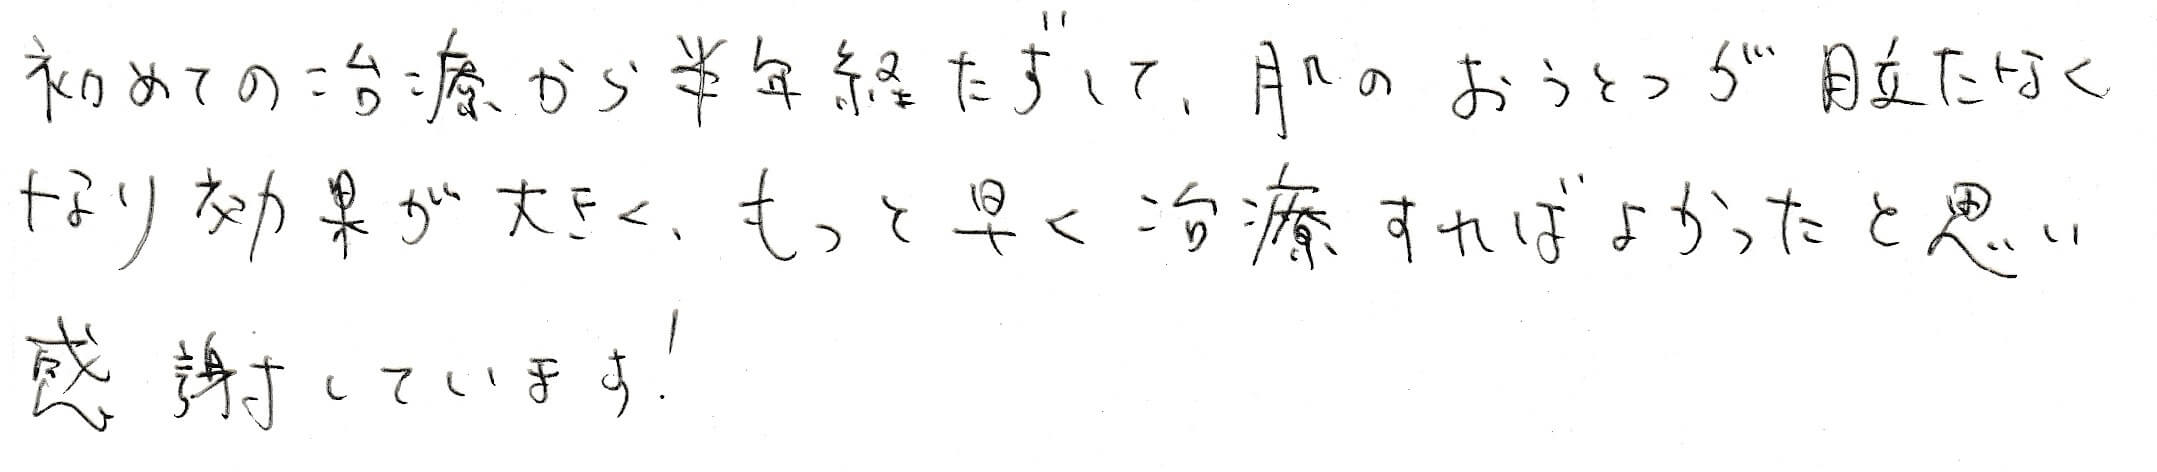 初めての治療から半年経たずして、肌のおうとつが目立たなく
なり効果が大きく、もっと早く治療すればよかったと思い
感謝しています!